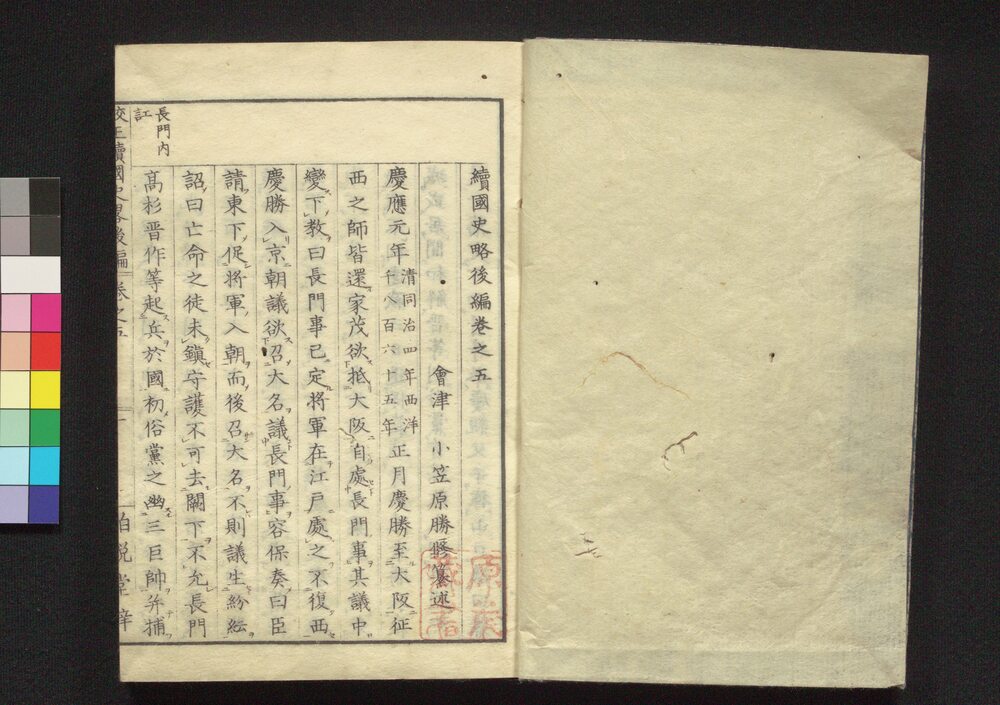 續國史略後編卷之五
會津 小笠原勝修纂述
慶應元年清同治四年西洋千八百六十五年正月慶勝至大阪征
西之師皆還家茂欲抵大阪自處長門事其議中
變下教曰長門事已定將軍在江戸處之不復西
慶勝入京朝議欲召大名議長門事容保奏曰臣
請東下促將軍入朝而後召大名不則議生紛紜
詔曰亡命之徒未鎮守護不可去闕下不允長門
高杉晋作等起兵於國初俗黨之幽三巨帥并捕
長門内
訌
校正續國史略後編 卷之五 一